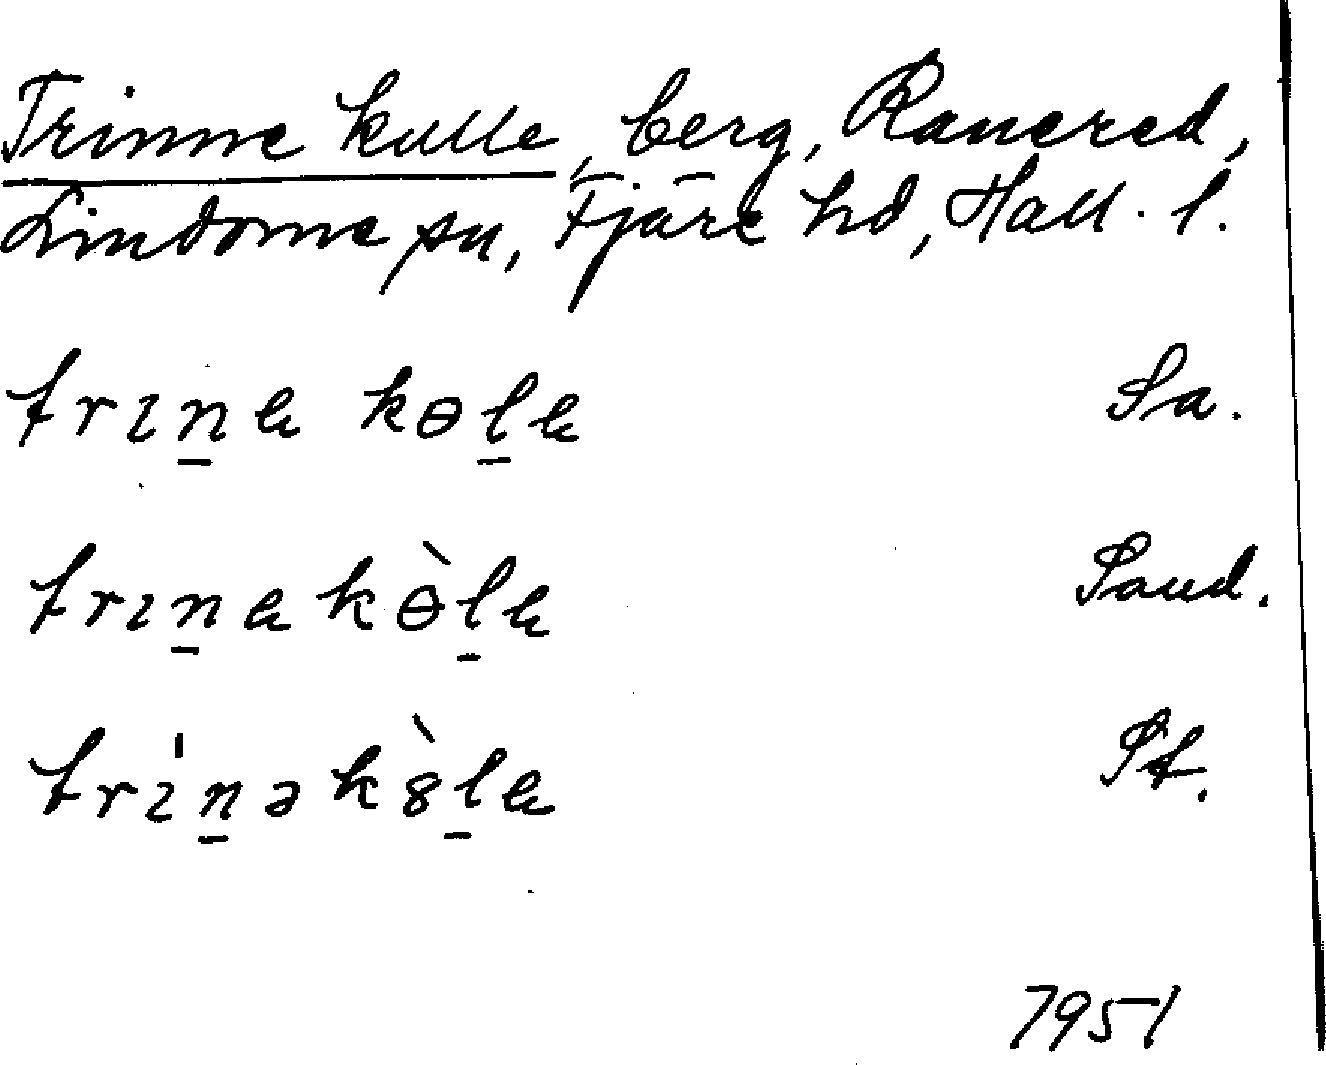 Trinne kulle, berg, Ranered,
Lindome sn, Fjäre hd, Hall. l.
trɪn̲e kɵl̲e Sa.
trɪn̲ekɵ̀l̲e Sand.
trɪ̍n̲ək8̀l̲e St.
7951